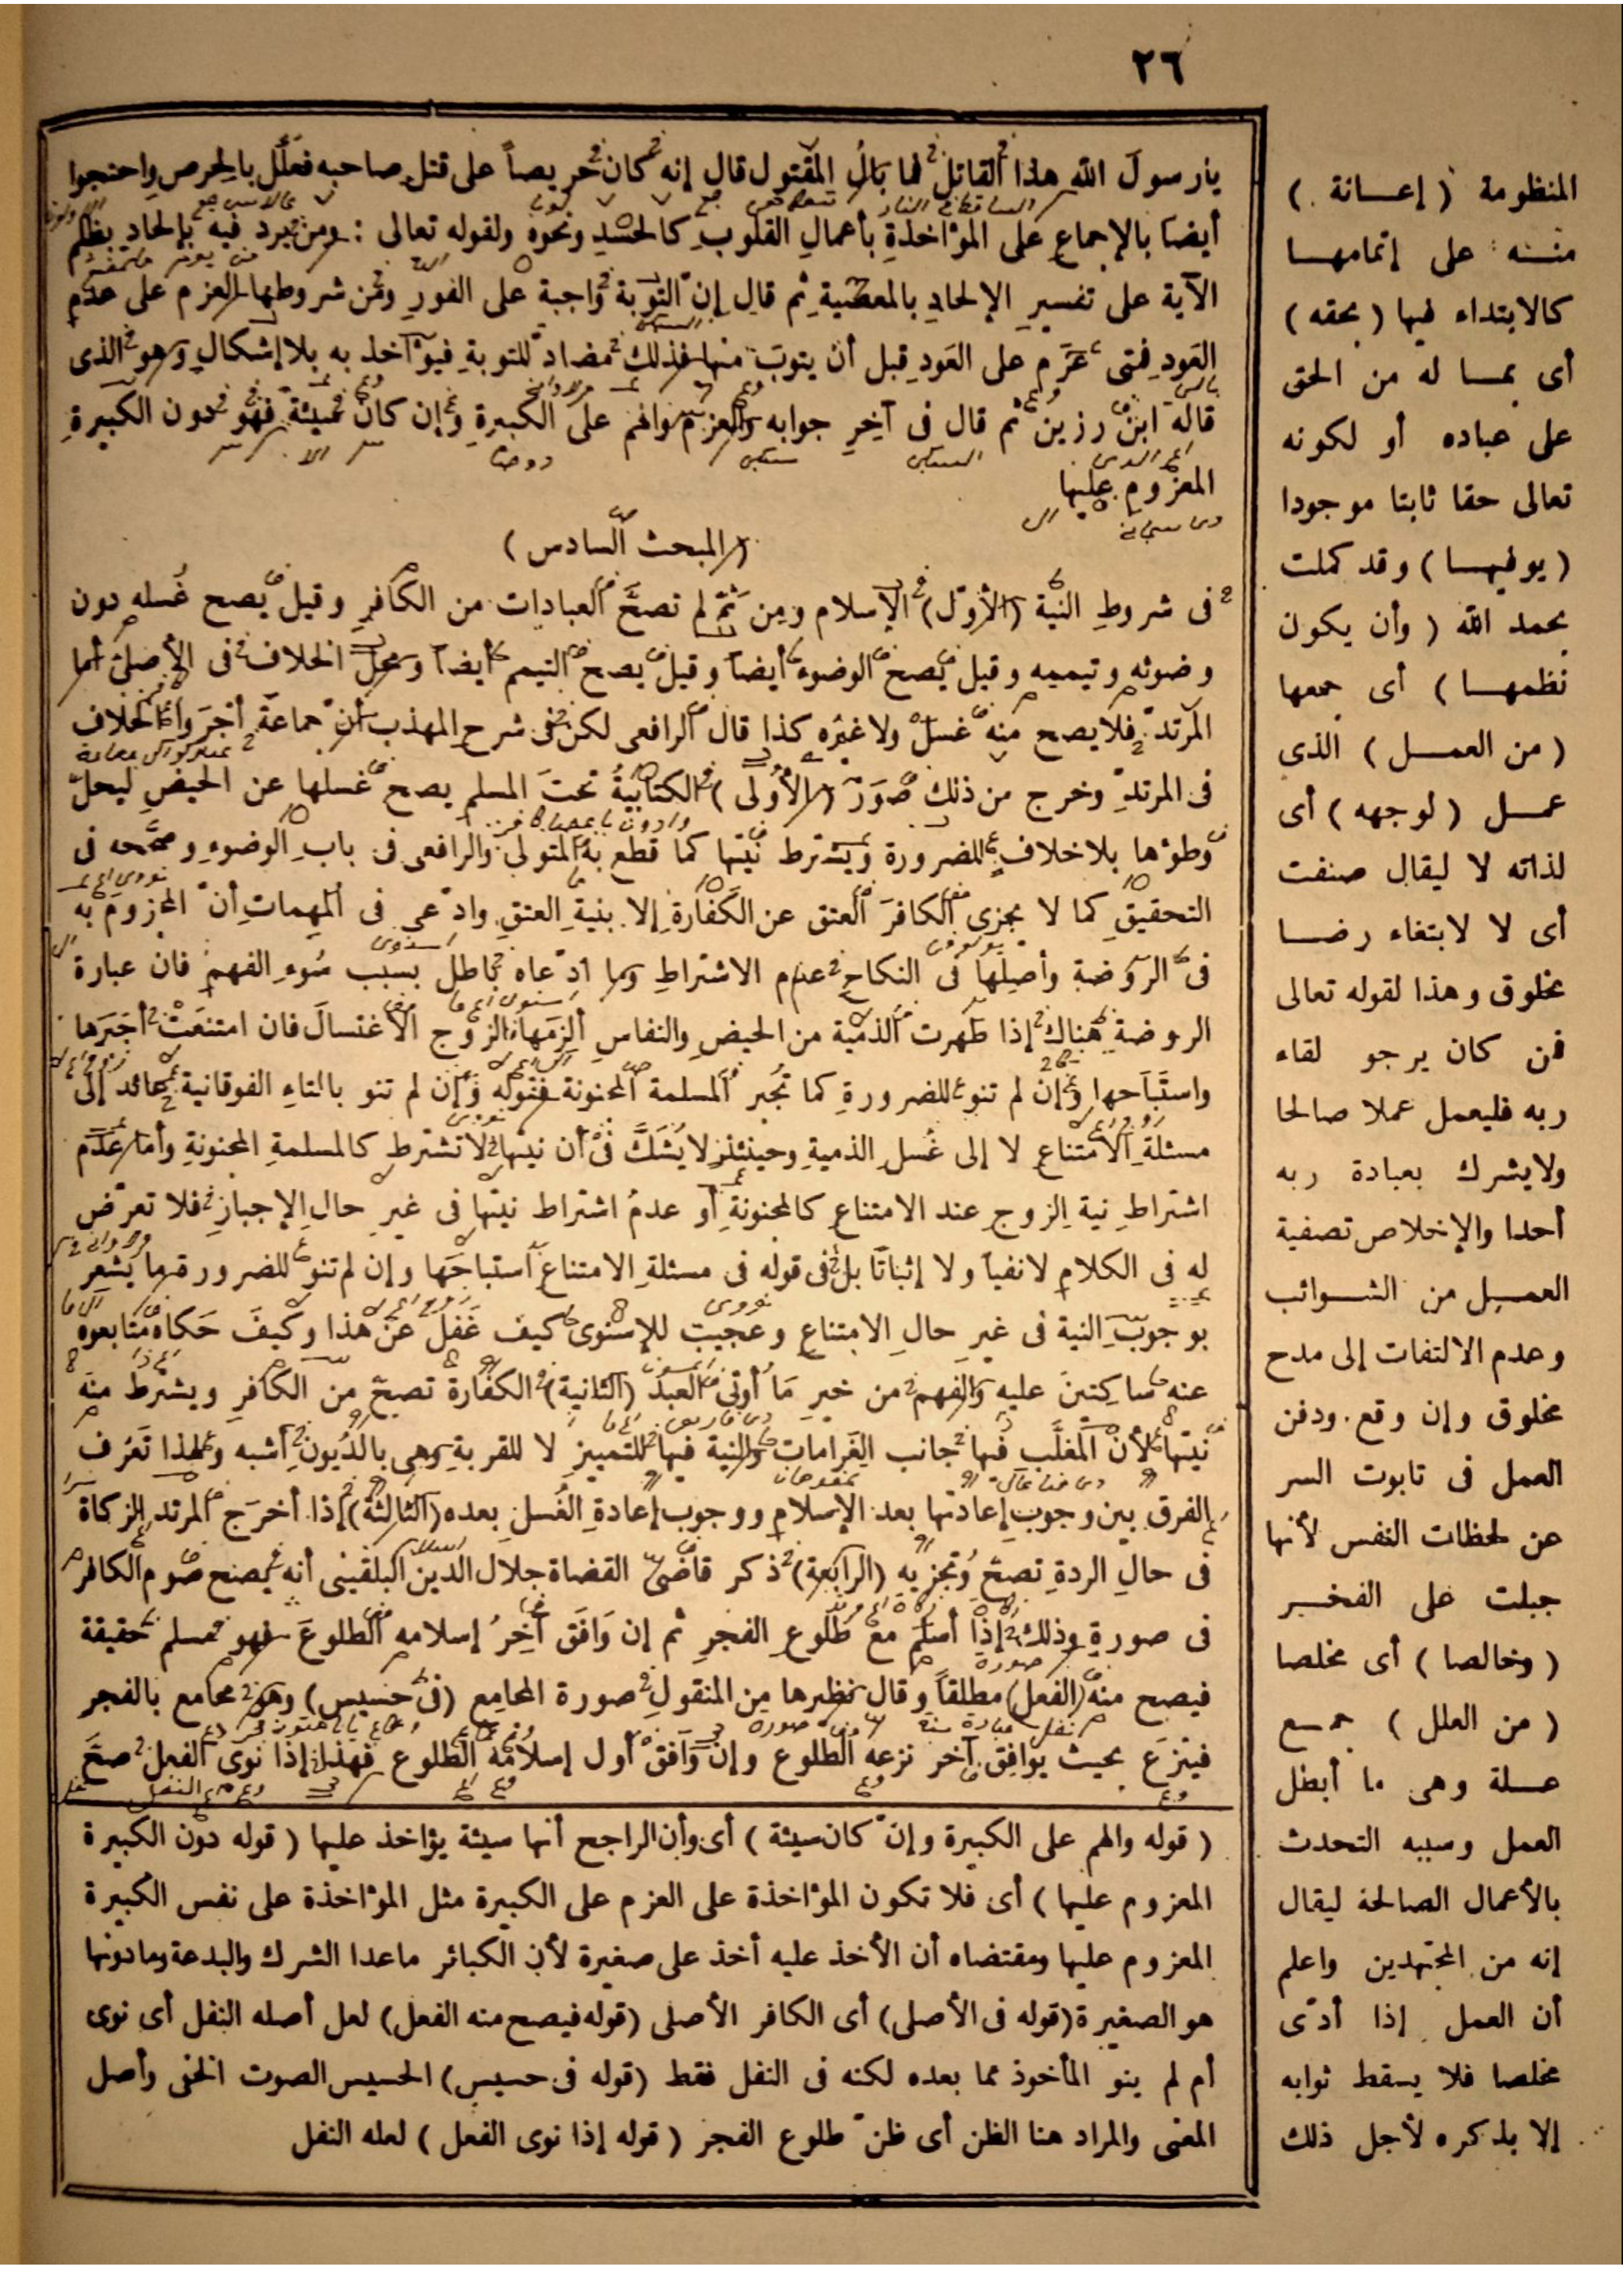 ٢٦
يا رسولَ الله هذا القاتل فما بالُ المقتول قال إنه كان حريصاً على قتل صاحبه فعلَّل بالحرص واحتجوا
أيضاً بالإجماع على المؤاخذةِ بأعمالِ القلوبِ كالحسدِ ونحوه ولقوله تعالى : ومن يرد فيه بإلحاد بظلم
الآية على تفسيرِ الإلحادِ بالمعصيةِ ثم قال إن التوبة واجبة على الفورِ ومن شروطها العزم على عدمِ
العَودِ فمتى عزَم على العَودِ قبل أن يتوبَ منها فذلك مضادّ للتوبةِ فيؤاخذ به بلا إشكالٍ وهو الذى
قاله ابن رزين ثم قال فى آخِرِ جوابه والعزم والهم على الكبيرةِ وإن كان سيئة فهو دون الكبيرةِ
المعزُوم عليها
( المبحث السادس )
فى شروطِ النية (الأول) الإسلام ومِن ثَمّ لم تصحَّ العبادات من الكافرِ وقيل يصح غُسله دون
وضوئه وتيممه وقيل يصح الوضوء أيضاً وقيل يصح التيمم أيضاً ومحلّ الخلاف فى الأصلىّ أما
المرتدّ فلا يصح منه غسلٌ ولا غيرُه كذا قال الرافعى لكن فى شرح المهذب أن جماعة أجرَوا الخلاف
فى المرتدِّ وخرج من ذلك صُوَر (الأُولى) الكتابيةُ تحتَ المسلم يصح غسلها عن الحيضِ ليحلّ
وطؤها بلا خلافٍ للضرورة ويشترط نيّتها كما قطع به المتولى والرافعى فى بابِ الوضوءِ وصحَّحه فى
التحقيق كما لا يجزى الكافرَ العتق عن الكَفّارةِ إلا بنيةِ العتقِ وادّعى فى المهماتِ أنّ المجزومَ به
فى الروضة وأصلِها فى النكاح عدم الاشتراطِ وما ادّعاه باطل بسبب سُوءِ الفهم فان عبارة
الروضة هناك إذا طَهرت الذمية من الحيضِ والنفاسِ ألزمَها الزوج الاغتسالَ فان امتنعَتْ أجبَرها
واستَباحها وإن لم تنو للضرورةِ كما تُجبر المسلمة المجنونة فقوله وإن لم تنو بالتاءِ الفوقانية عائد إلى
مسئلةِ الامتناع لا إلى غُسل الذميةِ وحينئذٍ لا يُشَكَّ فى أن نيتها لا تشترط كالمسلمةِ المجنونةِ وأما عدَم
اشتراطِ نيةِ الزوج عند الامتناع كالمجنونةِ أو عدمُ اشتراط نيتها فى غيرِ حالِ الإجبارِ فلا تعرّض
له فى الكلامِ لا نفياً ولا إثباتًا بل فى قوله فى مسئلةِ الامتناعِ استباحَها وإن لم تنو للضرورة ما يشعر
بوجوبِ النيةِ فى غيرِ حالِ الامتناعِ وعجيبٌ للإسنوى كيف غَفل عن هذا وكيفَ حَكاه متابعوه
عنه ساكتينَ عليه والفهم من خيرِ مَا أُوتى العبدُ (الثانية) الكفارة تصحّ من الكافرِ ويشترط منه
نيّتها لأنّ المغلَّب فيها جانب الغَراماتِ والنية فيها للتمييزِ لا للقربةِ وهى بالدُيون أشبه وبهذا تَعرِف
الفرق بين وجوب إعادتها بعد الإسلامِ ووجوب إعادةِ الغُسلِ بعده (الثالثة) إذا أخرَج المرتد الزكاة
فى حالِ الردةِ تصحّ وتجزيه (الرابعة) ذكر قاضى القضاة جلال الدين البلقينى أنه يصح صوم الكافر
فى صورةٍ وذلك إذا أسلم مع طلوع الفجرِ ثم إن وَافَق آخرُ إسلامه الطلوعَ فهو مسلم حقيقة
فيصح منه (الفعل) مطلقاً وقال نظيرها مِن المنقولِ صورة المجامِع (فى حسيس) وهو مجامع بالفجر
فينزَع بحيث يوافق آخر نزعه الطلوع وإنْ وَافق أول إسلامه الطلوع فهذا إذا نوَى الفعل صحَّ
( قوله والهم على الكبيرة وإن كان سيئة ) أى وأن الراجح أنها سيئة يؤاخذ عليها ( قوله دون الكبيرة
المعزوم عليها ) أى فلا تكون المؤاخذة على العزم على الكبيرة مثل المؤاخذة على نفس الكبيرة
المعزوم عليها ومقتضاه أن الأخذ عليه أخذ على صغيرة لأن الكبائر ماعدا الشرك والبدعة ومادونها
هو الصغيرة (قوله فى الأصلى) أى الكافر الأصلى (قوله فيصح منه الفعل) لعل أصله النفل أى نوى
أم لم ينو المأخوذ مما بعده لكنه فى النفل فقط (قوله فى حسيس) الحسيس الصوت الخفى وأصل
المعنى والمراد هنا الظن أى ظن طلوع الفجر ( قوله إذا نوى الفعل ) لعله النفل
المنظومة ( إعانة )
منه على إتمامها
كالابتداء فيها ( بحقه )
أى بما له من الحق
على عباده أو لكونه
تعالى حقا ثابتا موجودا
( يوفيها ) وقد كملت
بحمد الله ( وأن يكون
نظمها ) أى جمعها
( من العمل ) الذى
عمل ( لوجهه ) أى
لذاته لا ليقال صنفت
أى لا لابتغاء رضا
مخلوق وهذا لقوله تعالى
فمن كان يرجو لقاء
ربه فليعمل عملا صالحا
ولا يشرك بعبادة ربه
أحدا والإخلاص تصفية
العمل من الشوائب
وعدم الالتفات إلى مدح
مخلوق وإن وقع ودفن
العمل فى تابوت السر
عن لحظات النفس لأنها
جبلت على الفخر
( وخالصا ) أى مخلصا
( من العلل ) جمع
علة وهى ما أبطل
العمل وسببه التحدث
بالأعمال الصالحة ليقال
إنه من المجتهدين واعلم
أن العمل إذا أدّى
مخلصا فلا يسقط ثوابه
إلا بذكره لأجل ذلك